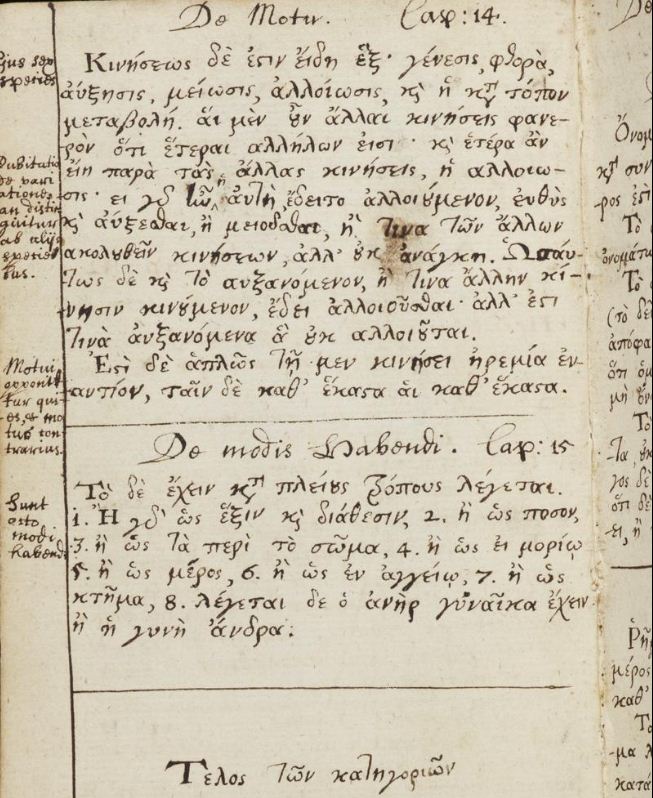 De Motu. Cap: 14.
Κινήσεως δὲ ἐστιν εἴδη ἕξ· γένεσις, φθορὰ,
αὔξησις, μείωσις, ἀλλοίωσις, κὶ ἡ κτ̀ τόπον
μεταβολή. ἅι μὲν ȣ̓ν ἄλλαι κινήσεις φανε-
ρὸν ὅτι ἕτεραι ἀλλήλων εἰσι· κὶ ἑτέρα ἂν
ἐίη παρὰ τὰς ἄλλας κινήσεις, ἡ αλλοιω-
σις· ει γὸ αὐτὴ, ἔδειτο ἀλλοιȣ́μενον, ἐυθὺς
κὶ ἀύξεσθαι, ἢ μειοῦσθαι, ἢ τινα τῶν ἄλλων
ακολȣθεῖν κινήσεων, ἀλλ' ȣ̓κ ἀνάγκη. Ὡσάυ-
τως δὲ κὶ τὸ αυξανόμενον, ἢ τινα ἄλλην κί-
νησιν κινȣ́μενον, ἔδει ἀλλοιοῦσθαι· ἀλλ' ἐστι
τινὰ ἀυξανόμενα ἃ ȣ̓κ αλλοιȣ͂ται.
Ἐστὶ δὲ ἁπλῶς τῇ μεν κινήσει ἠρεμία ἐν-
αντίον, ταῖν δὲ καθ' ἕκαστα ἁι καθ' ἕκαστα.
De modis Habendi. Cap: 15
Τὸ δὲ ἔχειν κτ̀ πλείȣς τρόπους λέγεται.
1. Ἢ γὸ ὡς ἕξιν κὶ διάθεσιν, 2. ἢ ὡς ποσον,
3. ἢ ὡς τὰ περὶ τὸ σῶμα, 4. ἢ ὡς ἐι μορίῳ
5. ἢ ὡς μέρος, 6. ἢ ὡς ἐν αγγείῳ, 7. ἢ ὡς
κτῆμα, 8. λέγεται δε ὁ ἀνὴρ γυναῖκα ἔχειν
ἢ ἡ γυνὴ ἄνδρα.
Τελος τῶν κατηγοριῶν
ejus sex
species
Dubitatio
de vari
atione
an distin
guitur
ab aliis
specie
bus.
Motui
opponit
tur qui-
es, et mo
tus con
trarius.
Sunt
octo
modi
habendi